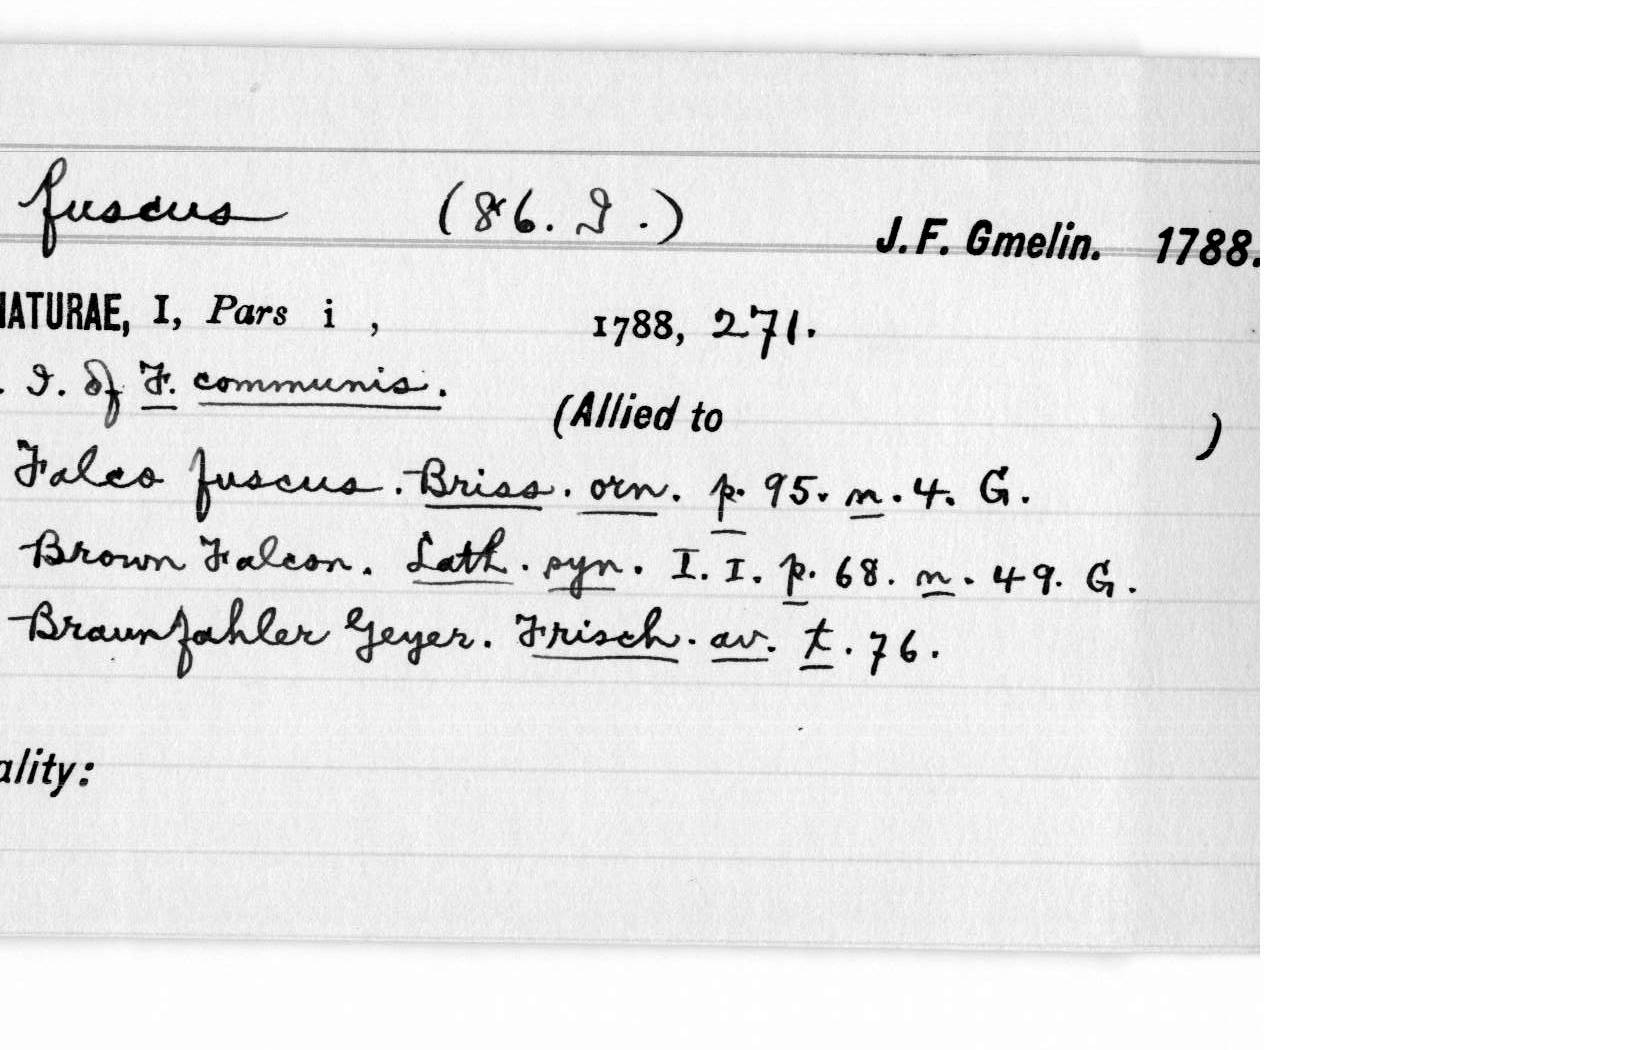 fuscus (86. ϑ.) J. F. Gmelin. 1788.
NATURAE, I, Pars i , 1788, 271.
. ϑ. of F. communis.
(Allied to )
Falco fuscus. Briss. orn. p. 95. n. 4. G.
Brown Falcon. Lath. syn. I. I. p. 68. n. 49. G.
Braunfahler Geyer. Frisch. av. t. 76.
ality: